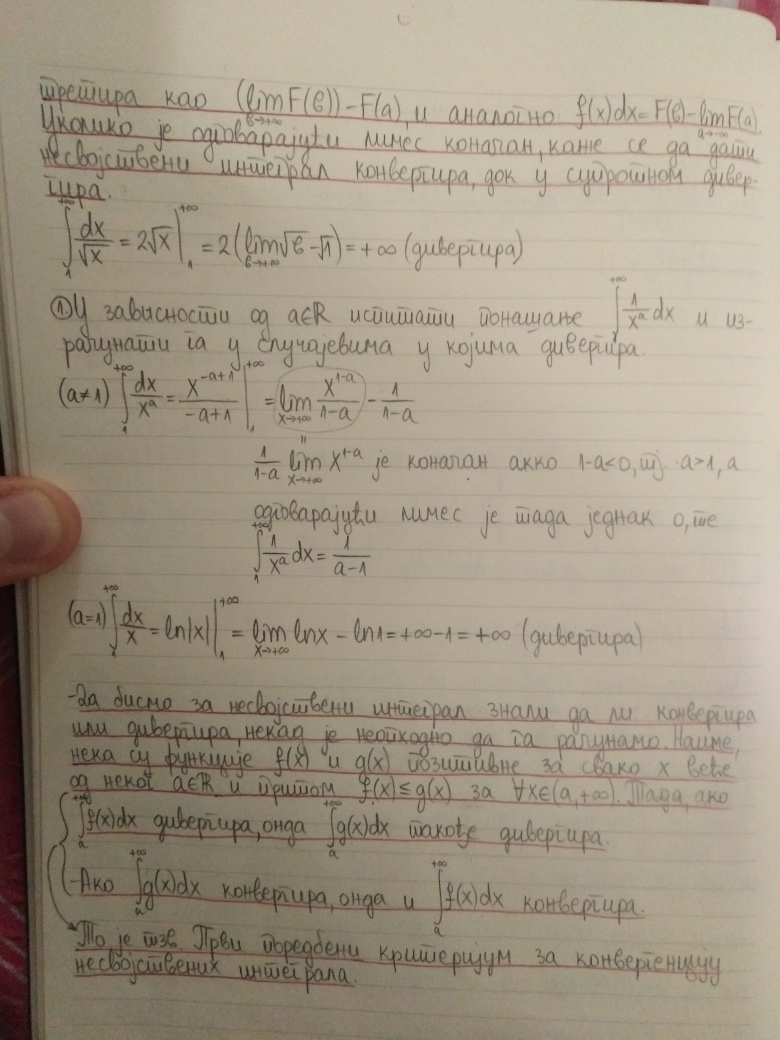 третира као (lim F(b)) - F(a), и аналогно f(x)dx = F(b) - lim F(a).
b→+∞ a→-∞
Уколико је одговарајући лимес коначан, каже се да дати
несвојствени интеграл конвергира, док у супротном дивер-
гира.
∫₁^{+∞} dx/√x = 2√x |₁^{+∞} = 2(lim_{b→+∞} √b - √1) = +∞ (дивергира)
① У зависности од a∈ℝ испитати понашање ∫₁^{+∞} 1/x^a dx и из-
рачунати га у случајевима у којима дивергира.
(a≠1) ∫₁^{+∞} dx/x^a = x^{-a+1}/(-a+1) |₁^{+∞} = lim_{x→+∞} x^{1-a}/(1-a) - 1/(1-a)
"
1/(1-a) lim_{x→+∞} x^{1-a} је коначан акко 1-a<0, тј. a>1, а
одговарајући лимес је тада једнак 0, те
∫₁^{+∞} 1/x^a dx = 1/(a-1)
(a=1) ∫₁^{+∞} dx/x = ln|x| |₁^{+∞} = lim_{x→+∞} lnx - ln1 = +∞ - 1 = +∞ (дивергира)
-Да бисмо за несвојствени интеграл знали да ли конвергира
или дивергира, некад је неопходно да га рачунамо. Наиме,
нека су функције f(x) и g(x) позитивне за свако x веће
од неког a∈ℝ и притом f(x) ≤ g(x) за ∀x∈(a,+∞). Тада, ако
∫ₐ^{+∞} f(x)dx дивергира, онда ∫ₐ^{+∞} g(x)dx такође дивергира.
-Ако ∫ₐ^{+∞} g(x)dx конвергира, онда и ∫ₐ^{+∞} f(x)dx конвергира.
То је тзв. Први поредбени критеријум за конвергенцију
несвојствених интеграла.